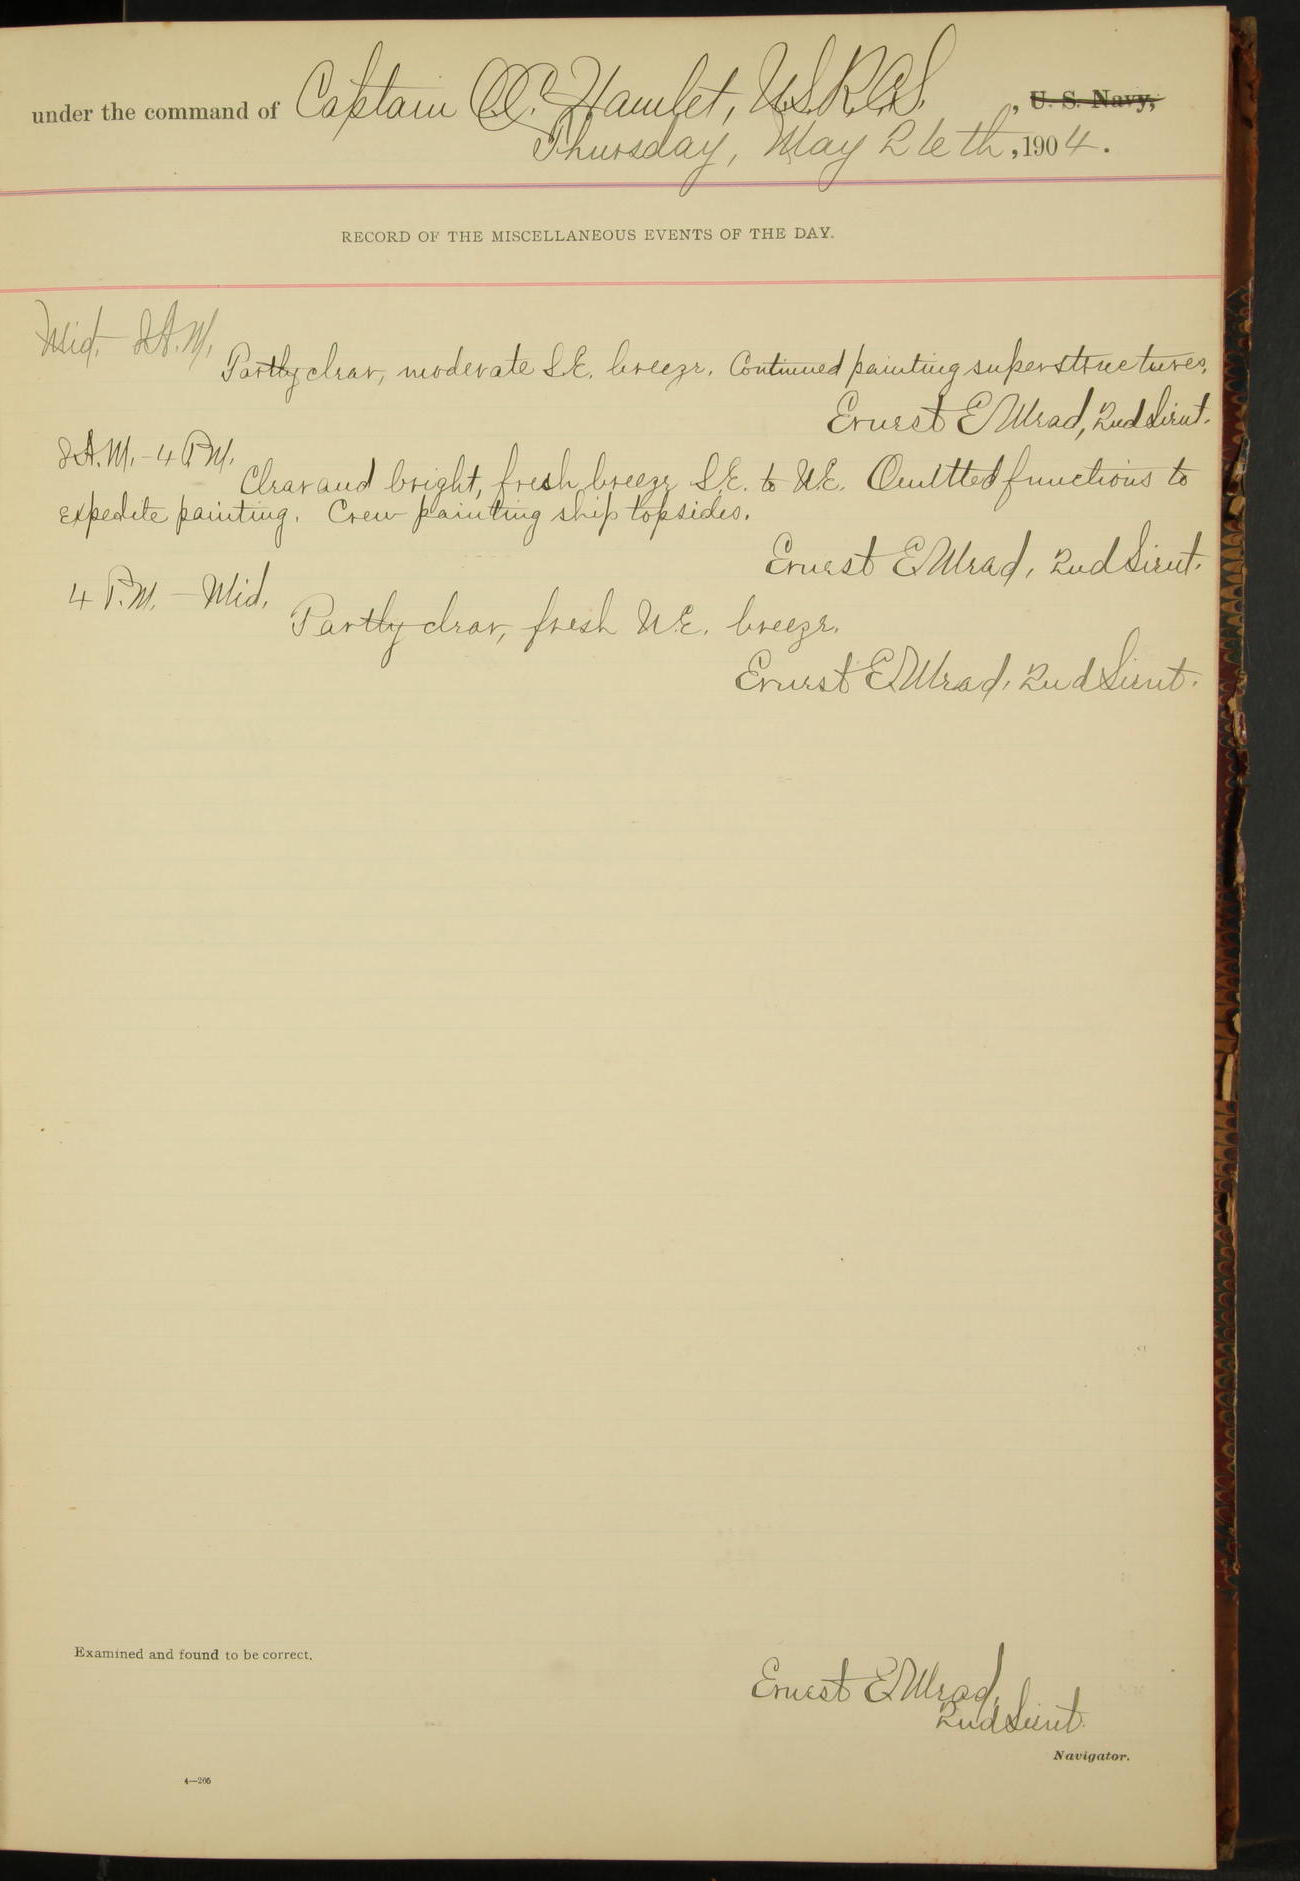 under the command of Captain O.C. Hamlet, U.S.R.C.S. , U. S. Navy,
Thursday, May 26th, 1904.
RECORD OF THE MISCELLANEOUS EVENTS OF THE DAY.
Mid. - 8 A.M.
Partly clear, moderate S.E. breeze. Continued painting superstructures.
Ernest E. Mead, 2nd Lieut.
8 A.M. - 4 P.M.
Clear and bright, fresh breeze S.E. to N.E. Omitted functions to
expedite painting. Crew painting ship topsides.
Ernest E. Mead, 2nd Lieut.
4 P.M. - Mid.
Partly clear, fresh N.E. breeze.
Ernest E. Mead, 2nd Lieut.
Examined and found to be correct.
Ernest E. Mead,
2nd Lieut.
Navigator.
4—205